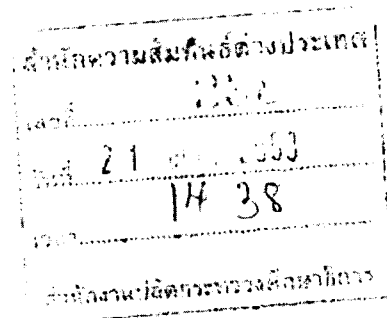 สำนักความสัมพันธ์ต่างประเทศ
เลขที่
วันที่ 21
เวลา 14 38
สำนักงานปลัดกระทรวงศึกษาธิการ